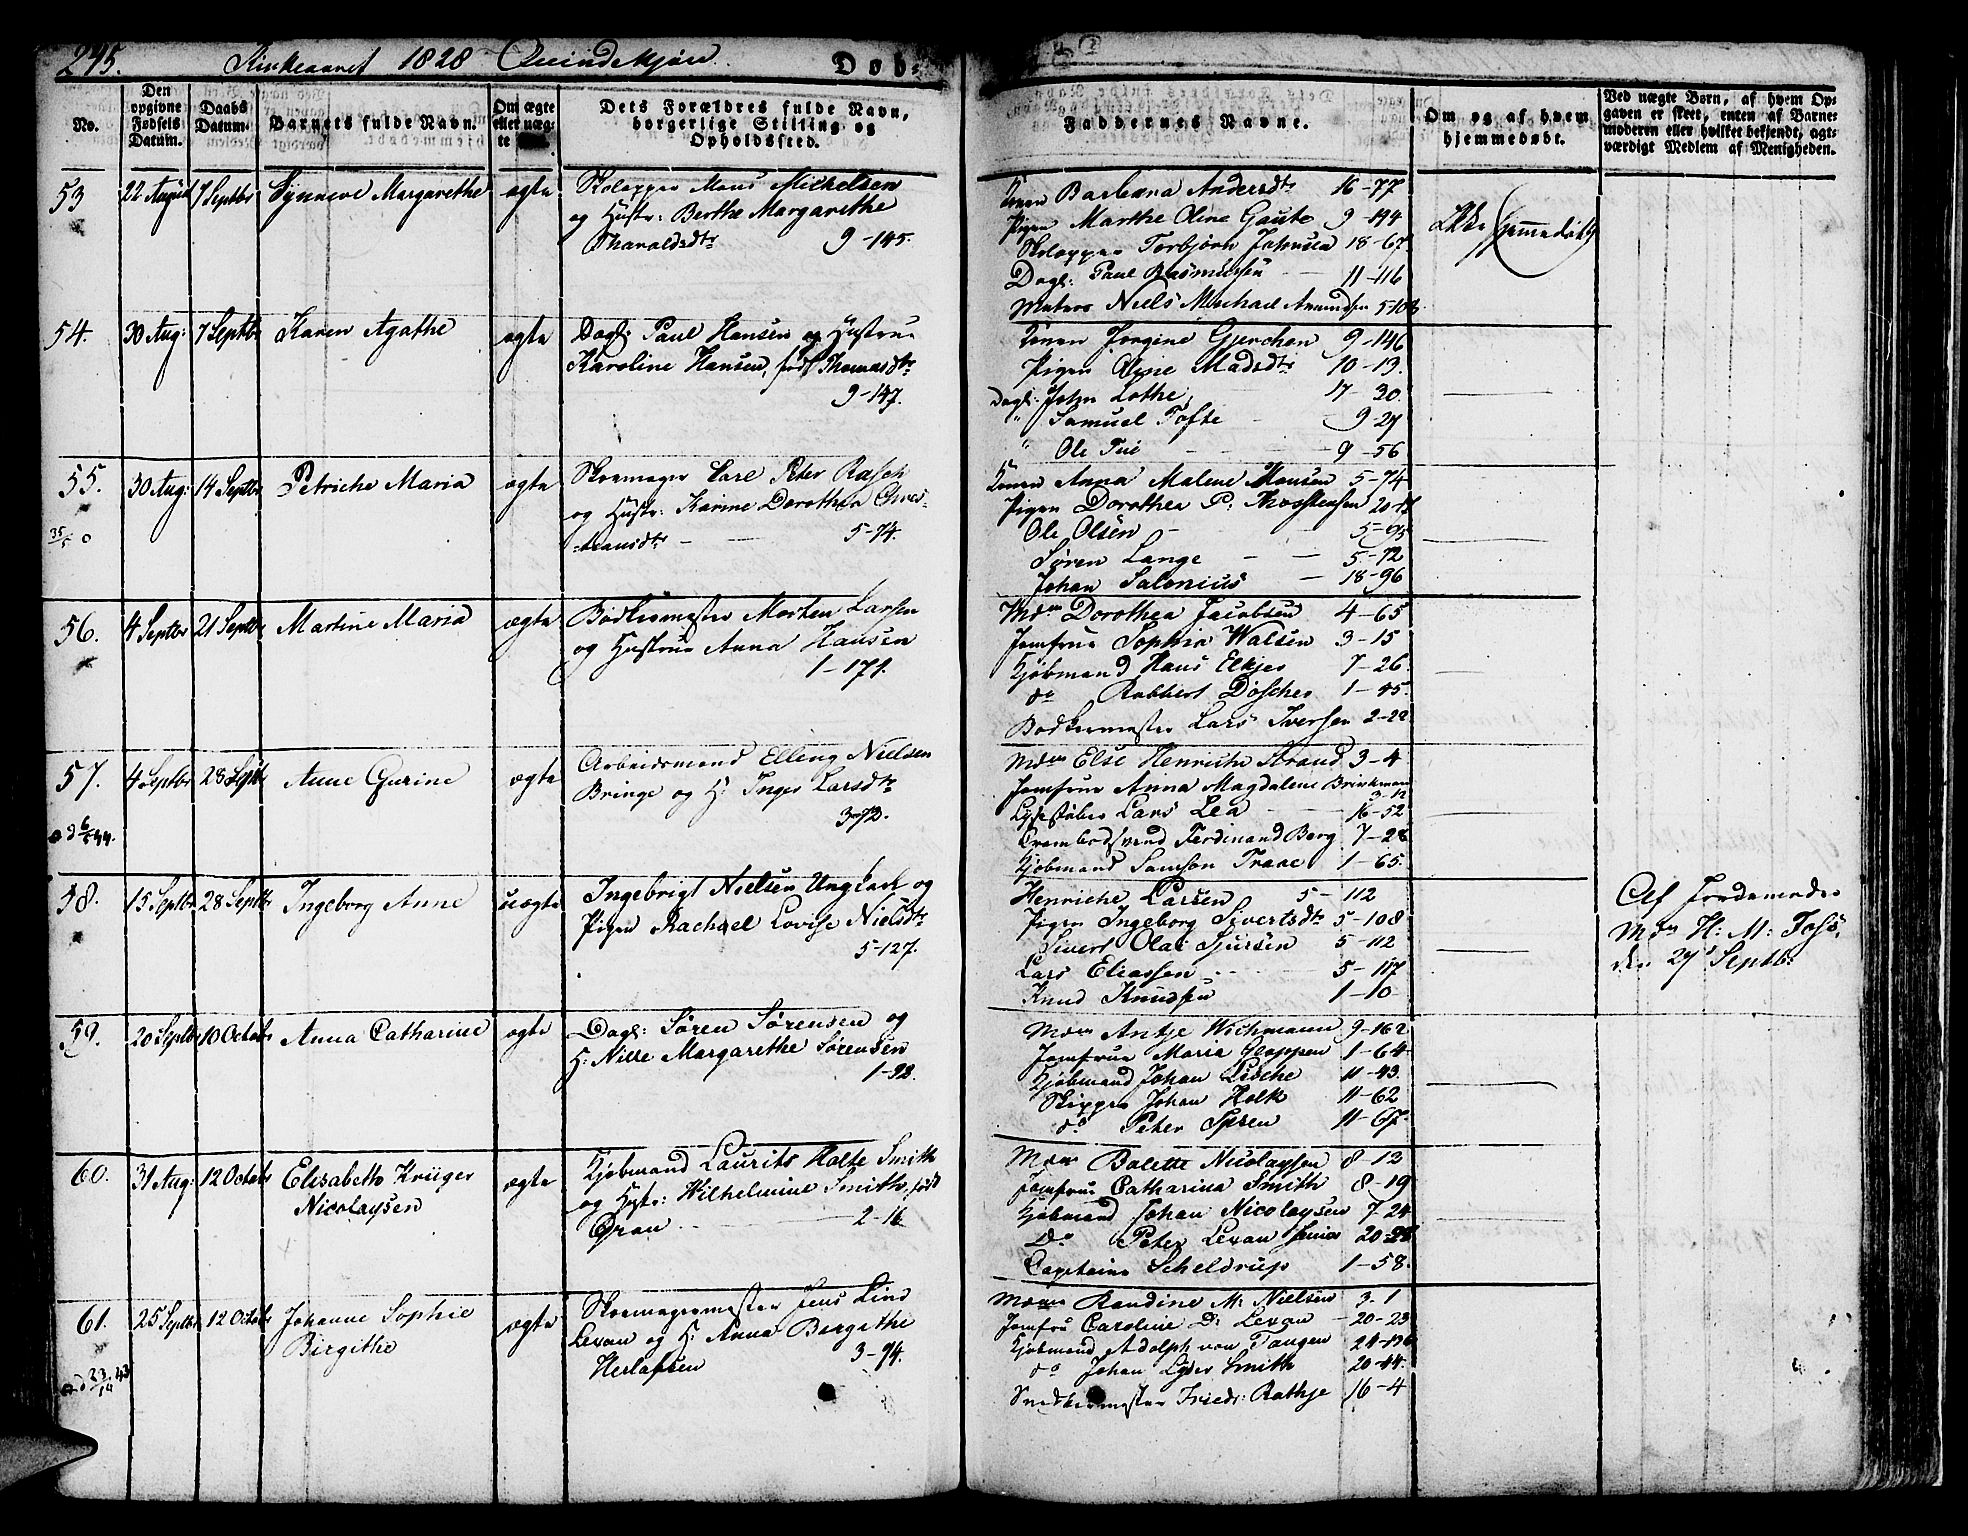 245. Kirkeaaret 1828 Qvindekjøn. Døb-
No.
Den opgivne Fødsels Datum.
Daabs Datum.
Barnets fulde Navn.
Om ægte eller uægte
Dets Forældres fulde Navn, borgerlige Stilling og Opholdssted.
Faddernes Navne.
Om og af hvem hjemmedøbt.
Ved uægte Børn, af hvem Opgaven er skeet, enten af Barnemoderen eller hvilket bekjendt, agtværdigt Medlem af Menigheden.
53 22 August 7 Septbr Synneve Margarethe ægte
Skolapper Mons Michelsen
og Hustr: Berthe Margarethe
Tharaldsdtr 9-145.
Konen Barbara Andersdtr 16-77
Pigen Marthe Oline Gaute 9-194
Skolapper Torbjørn Johnsen 18-67
Dagl: Paul Rasmussen 11-116
Matros Niels Michael Amundsen 5-108
Ikke hjemmedøbt
54. 30 Aug: 7 Septbr Karen Agathe ægte
Dagl: Paul Hansen og Hustrue
Karoline Hansen, født Thomasdtr
9-147.
Konen Jorgine Gjerchen 9-146
Pigen Oline Madsdtr 10-19.
Dagl: John Lothe 17-30.
" Samuel Tofte 9-27
" Ole Tue 9-56
55. 30 Aug: 14 Septbr Petriche Maria ægte
Skoemager Carl Peter Rasch
og Hustr: Karine Dorothea
5-74.
Konen Anna Malene Monsen 5-74
Pigen Dorothea P: Thorstensen
Ole Olsen 5-95
Søren Lange 5-72
Johan Salonius 18-96
56. 4 Septbr 21 Septbr Martine Maria ægte
Bødkermester Morten Larsen
og Hustrue Anna Hansen
1-171.
Mdm Dorothea Jacobsen 4-65
Jomfrue Sophia Walsen 3-15
Kjøbmand Hans Elkjer 7-26
do Robbert Døscher 1-45.
Bødkermester Lars Iversen 2-22
57. 4 Septbr 28 Septbr Anne Gurine ægte
Arbeidsmand Elling Nielsen
Bringe og H: Inger Larsdtr
Mdm Else Henriche Strand 3-4
Jomfrue Anna Magdalene Brinkmann
3-12
Lysestøber Lars Lea 16-52
Cramboedsvend Ferdinand Berg 7-28
Kjøbmand Samson Traae 1-65.
58. 15 Septbr 28 Septbr Ingeborg Anne uægte
Ingebrigt Nielsen Ungkarl og
Pigen Rachael Lovise Nielsdtr
5-127.
Henriche Larsen 5-112
Pigen Ingeborg Sivertsdtr 5-108
Sivert Olai Sjursen 5-112
Lars Eliassen 5-117
Knud Knudsen 1-10
Af Jordemoder
Mdm H: M: Foss,
den 27 Septbr
59. 20 Septbr 10 Octobr Anna Catharine ægte
Dagl: Søren Sørensen og
H: Nille Margarethe Sørensen
1-92.
Mdm Antje Wichmann 9-162
Jomfrue Maria Gloppen 1-64
Kjøbmand Johan Lische 11-43.
Skipper Johan Holk 11-62
do Peter Ipsen 11-67.
60. 31 Aug: 12 Octobr Elisabeth Krüger
Nicolaysen ægte
Kjøbmand Laurits Holte Smith
og Hustr: Wilhelmine Smith, født
Gran 2-16
Mdm Bolette Nicolaysen 8-12
Jomfrue Catharina Smith 8-19
Kjøbmand Johan Nicolaysen 7-24
Do Peter Lexau Senior
Capitaine Scheldrup 1-58.
61. 25 Septbr 12 Octobr Johanne Sophie
Birgithe ægte
Skoemagermester Jens Lind
Lexau og H: Anna Bergithe
Herlofsen 3-74.
Mdm Randine M: Nielsen 3-1
Jomfru Caroline D: Lexau 20-23
Kjøbmand Adolph von Tangen 24-136
do Johan Lyder Smith 20-44.
Snedkermester Friedr: Rathje 16-4